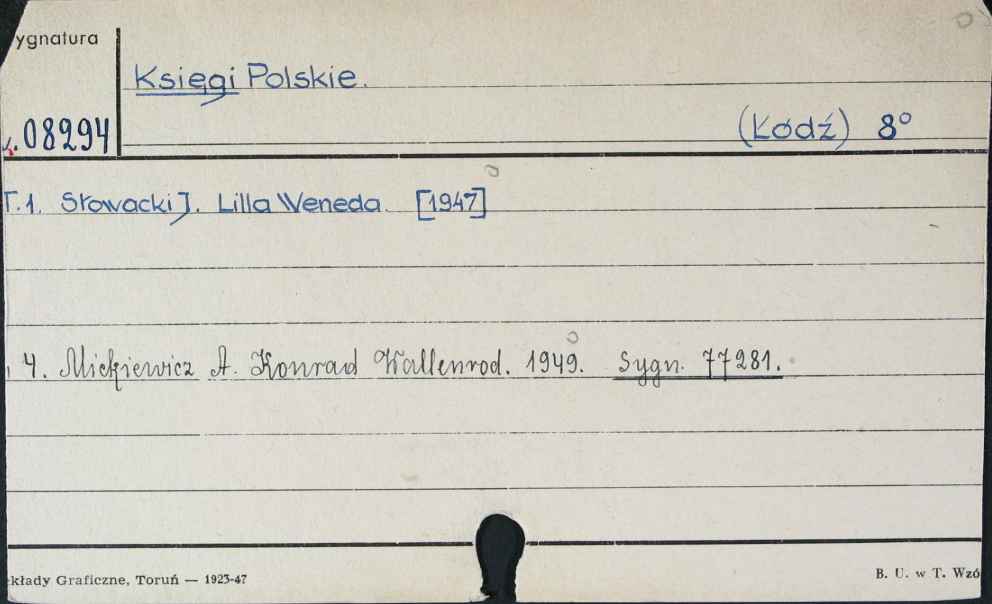 ygnatura
Księgi Polskie.
08294
(Łódź) 8°
T.1. Słowacki J. Lilla Weneda [1947]
4. Mickiewicz A. Konrad Wallenrod. 1949. Sygn. 77281.
kłady Graficzne, Toruń — 1923-47
B. U. w T. Wzó